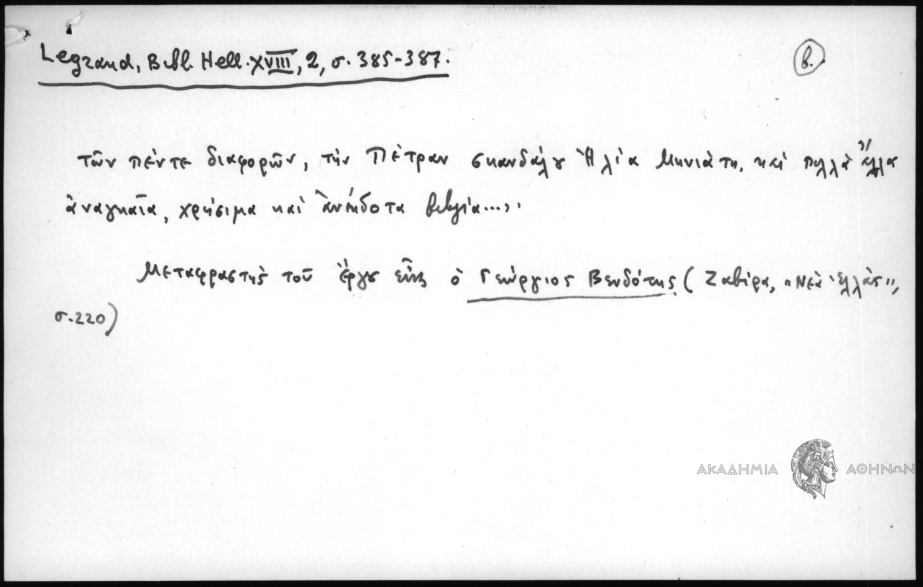 Legrand, Bibl. Hell. XVIII, 2, σ. 385-387.
β.
τῶν πέντε διαφορῶν, τὴν Πέτραν σκανδάλου Ἠλία Μηνιάτη, καὶ πολλὰ ἄλλα
ἀναγκαῖα, χρήσιμα καὶ ἀνέκδοτα βιβλία...»
Μεταφραστὴς τοῦ ἔργου εἶναι ὁ Γεώργιος Βενδότης (Ζαβίρα, „Νέα Ἑλλάς",
σ. 220)
ΑΚΑΔΗΜΙΑ ΑΘΗΝΩΝ